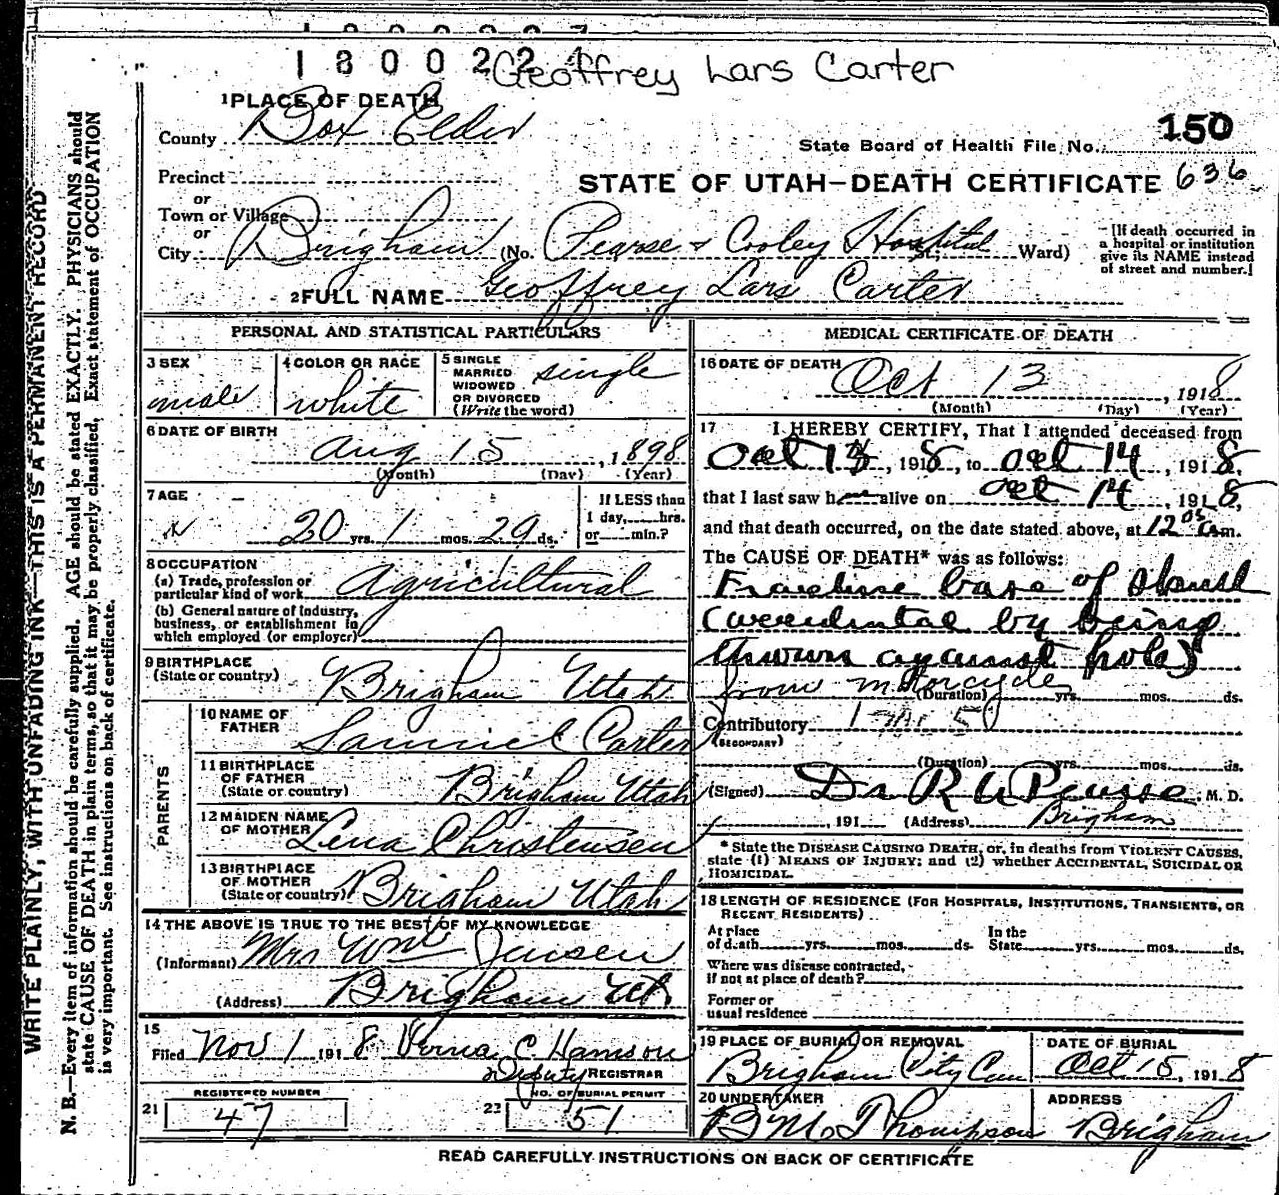 1800224
Geoffrey Lars Carter
1 PLACE OF DEATH
County Box Elder
State Board of Health File No. 150
Precinct
STATE OF UTAH—DEATH CERTIFICATE 636
or
Town or Village
or
City Brigham (No. Pearse & Cooley Hospital St.; Ward)
[If death occurred in
a hospital or institution
give its NAME instead
of street and number.]
2 FULL NAME Geoffrey Lars Carter
PERSONAL AND STATISTICAL PARTICULARS
3 SEX male
4 COLOR OR RACE white
5 SINGLE
MARRIED
WIDOWED
OR DIVORCED
(Write the word)
single
6 DATE OF BIRTH
Aug 15, 1898
(Month) (Day) (Year)
7 AGE
20 yrs. 1 mos. 29 ds.
If LESS than
1 day, hrs.
or min.?
8 OCCUPATION
(a) Trade, profession or
particular kind of work Agricultural
(b) General nature of industry,
business, or establishment in
which employed (or employer)
9 BIRTHPLACE
(State or country) Brigham Utah
PARENTS
10 NAME OF
FATHER Samuel Carter
11 BIRTHPLACE
OF FATHER
(State or country) Brigham Utah
12 MAIDEN NAME
OF MOTHER Lena Christensen
13 BIRTHPLACE
OF MOTHER
(State or country) Brigham Utah
14 THE ABOVE IS TRUE TO THE BEST OF MY KNOWLEDGE
(Informant) Mrs Wm Jensen
(Address) Brigham Utah
15
Filed Nov 1 1918 Verna C Hamson
Deputy REGISTRAR
REGISTERED NUMBER
21 47
NO. OF BURIAL PERMIT
22 51
MEDICAL CERTIFICATE OF DEATH
16 DATE OF DEATH
Oct 13, 1918
(Month) (Day) (Year)
17 I HEREBY CERTIFY, That I attended deceased from
Oct 13, 1918, to Oct 14, 1918,
that I last saw h alive on Oct 14, 1918,
and that death occurred, on the date stated above, at 12 05 a m.
The CAUSE OF DEATH* was as follows:
Fracture base of skull
(accidental by being
thrown against pole)
from motorcycle
(Duration) yrs. mos. ds.
Contributory
(SECONDARY)
(Duration) yrs. mos. ds.
(Signed) Dr R A Pearse M. D.
, 191 (Address) Brigham
* State the DISEASE CAUSING DEATH, or, in deaths from VIOLENT CAUSES,
state (1) MEANS OF INJURY; and (2) whether ACCIDENTAL, SUICIDAL OR
HOMICIDAL.
18 LENGTH OF RESIDENCE (FOR HOSPITALS, INSTITUTIONS, TRANSIENTS, OR
RECENT RESIDENTS)
At place
of death yrs. mos. ds.
In the
State yrs. mos. ds.
Where was disease contracted,
if not at place of death?
Former or
usual residence
19 PLACE OF BURIAL OR REMOVAL
Brigham City Cem
DATE OF BURIAL
Oct 15, 1918
20 UNDERTAKER
B M Thompson
ADDRESS
Brigham
READ CAREFULLY INSTRUCTIONS ON BACK OF CERTIFICATE
WRITE PLAINLY, WITH UNFADING INK—THIS IS A PERMANENT RECORD
N. B.—Every item of information should be carefully supplied. AGE should be stated EXACTLY. PHYSICIANS should
state CAUSE OF DEATH in plain terms, so that it may be properly classified. Exact statement of OCCUPATION
is very important. See instructions on back of certificate.